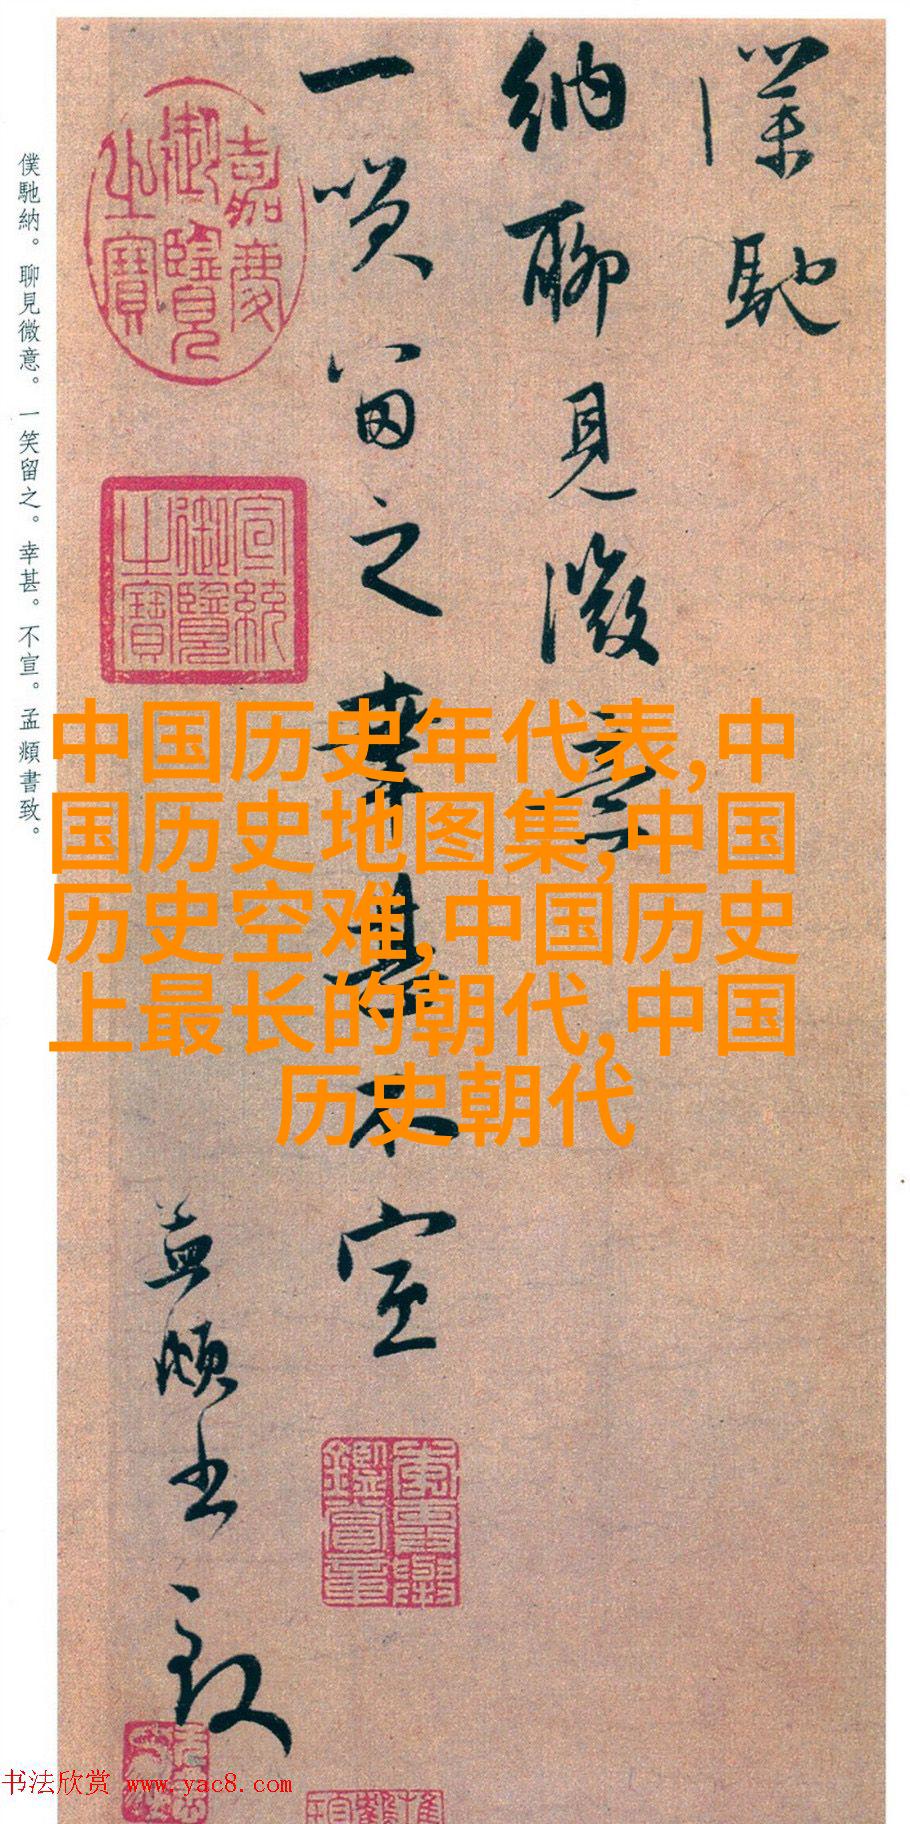 僕馳
納聊見微意
一笑留之幸甚不宣
孟頫書致
嘉慶御覽之寶
宣統御覽之寶
僕馳納。聊見微意。一笑留之。幸甚。不宣。孟頫書致。
中国历史年代表,中
国历史地图集,中国
历史空难,中国历史
上最长的朝代,中国
历史朝代
书法欣赏 www.yac8.com